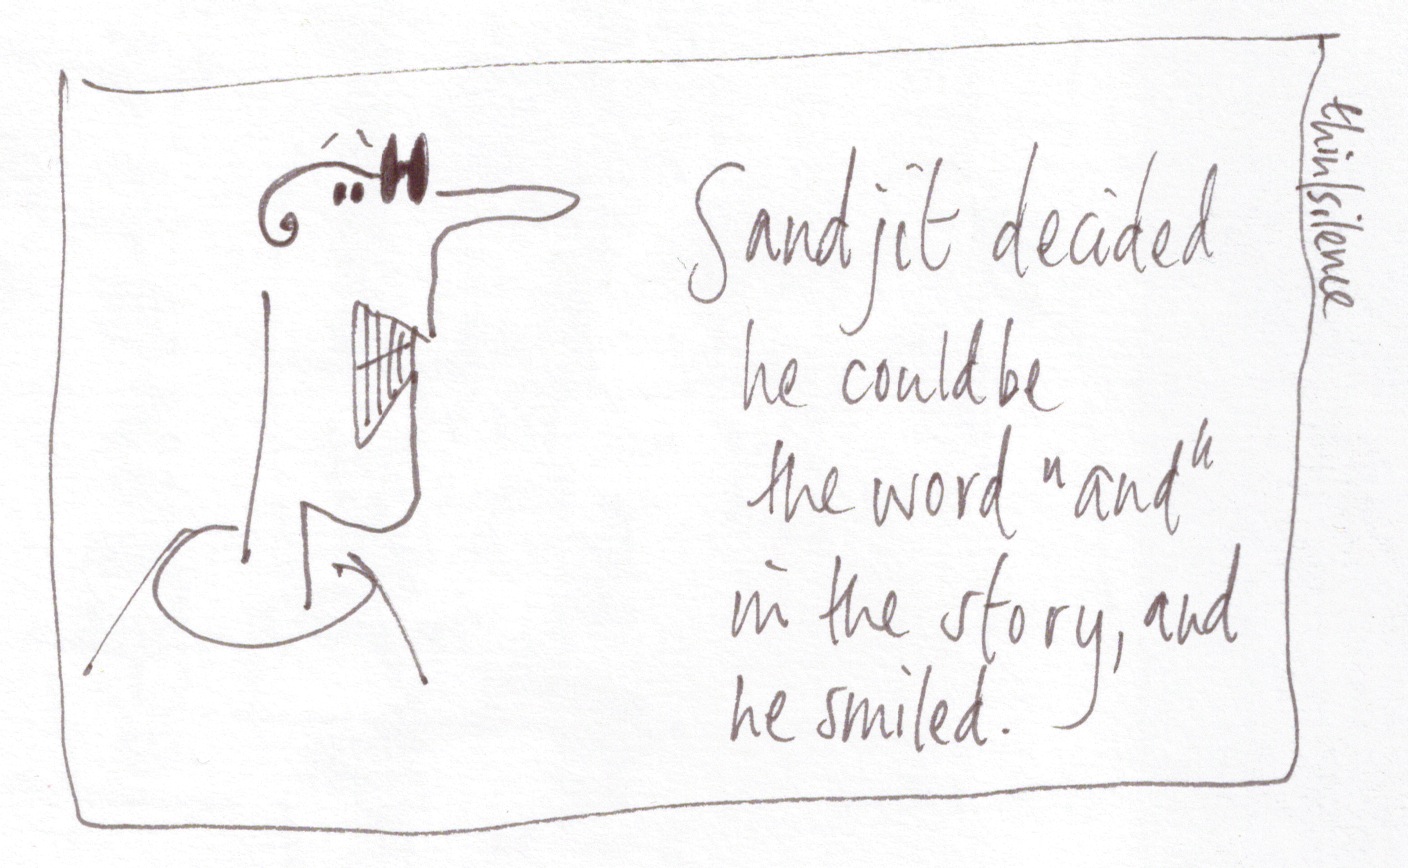 Sandjit decided
he could be
the word "and"
in the story, and
he smiled.
think|silence